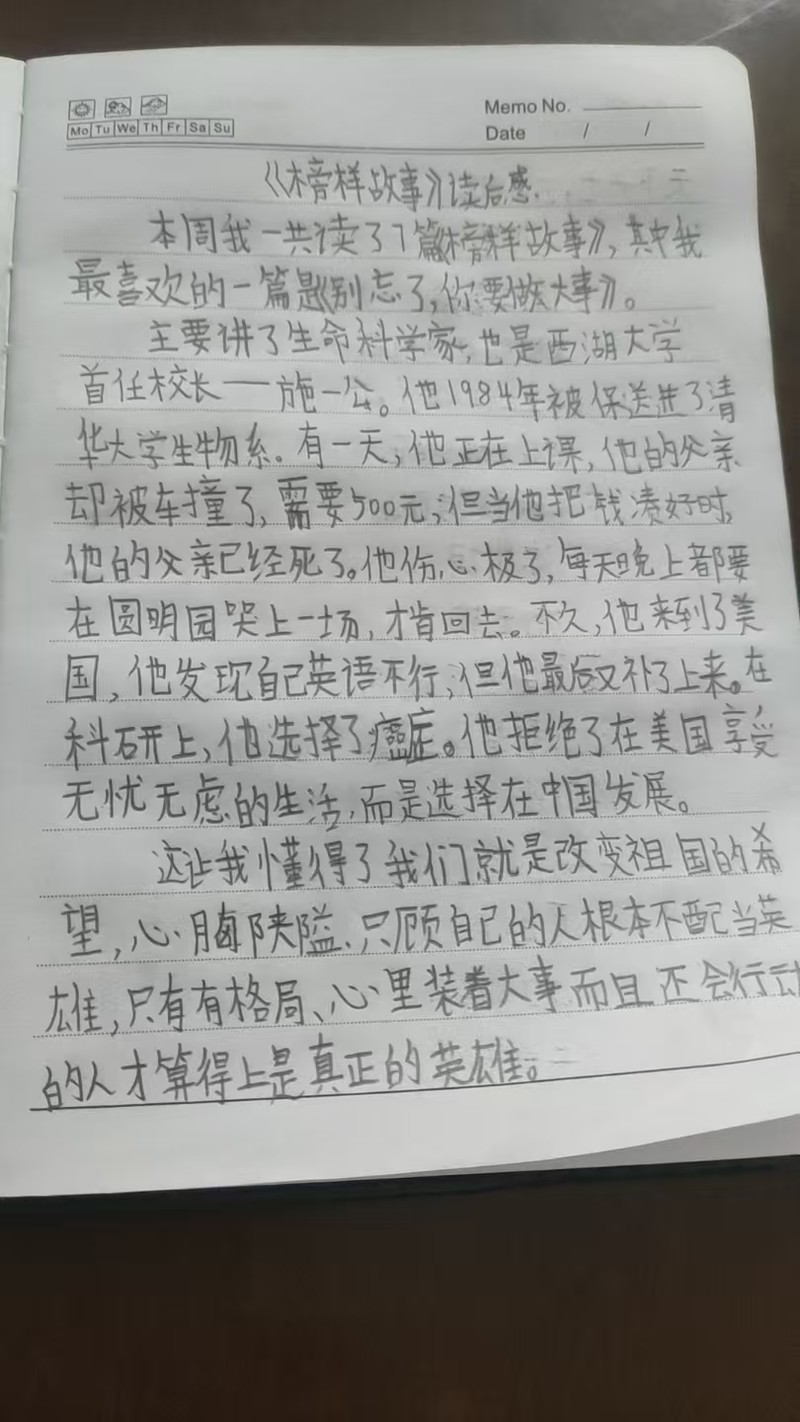 Mo Tu We Th Fr Sa Su
Memo No.
Date / /
《榜样故事》读后感
本周我一共读了7篇《榜样故事》，其中我
最喜欢的一篇是《别忘了，你要做大事》。
主要讲了生命科学家，也是西湖大学
首任校长——施一公。他1984年被保送进了清
华大学生物系。有一天，他正在上课，他的父亲
却被车撞了，需要500元，但当他把钱凑好时，
他的父亲已经死了。他伤心极了，每天晚上都要
在圆明园哭上一场，才肯回去。不久，他来到了美
国，他发现自己英语不行，但他最后又补了上来。在
科研上，他选择了癌症。他拒绝了在美国享受
无忧无虑的生活，而是选择在中国发展。
这让我懂得了我们就是改变祖国的希
望，心胸狭隘、只顾自己的人根本不配当英
雄，只有有格局、心里装着大事而且还会行动
的人才算得上是真正的英雄。